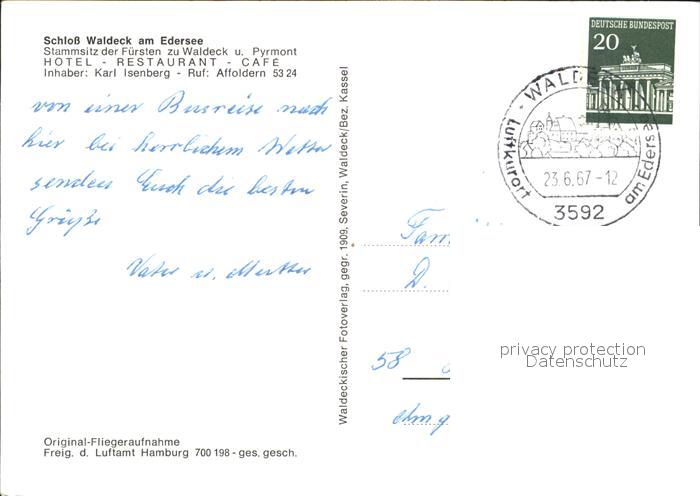 Schloß Waldeck am Edersee
Stammsitz der Fürsten zu Waldeck u. Pyrmont
HOTEL - RESTAURANT - CAFÉ
Inhaber: Karl Isenberg - Ruf: Affoldern 53 24
von einer Busreise nach
hier bei herrlichem Wetter
senden Euch die besten
Grüße
Vater u. Mutter
Original-Fliegeraufnahme
Freig. d. Luftamt Hamburg 700 198 - ges. gesch.
Waldeckischer Fotoverlag, gegr. 1909, Severin, Waldeck/Bez. Kassel
DEUTSCHE BUNDESPOST
20
WALDECK
Luftkurort
am Edersee
23.6.67-12
3592
Fam
D.
58
privacy protection
Detailansichten